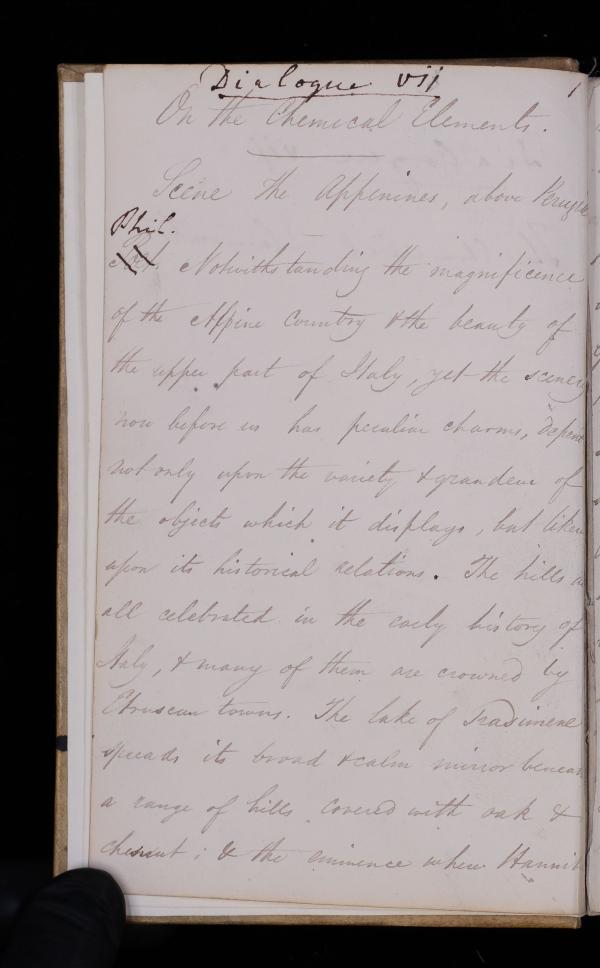 Dialogue VII
1
On the Chemical Elements.
Scene the Appenines, above Perugia
Phil.
Notwithstanding the magnificence
of the Alpine Country & the beauty of
the upper part of Italy, yet the scenery
now before us has peculiar charms, depend
not only upon the variety & grandeur of
the objects which it displays, but likew
upon its historical relations. The hills a
all celebrated in the early history of
Italy, & many of them are crowned by
Etruscan towns. The lake of Trasimene
spreads its broad & calm mirror beneath
a range of hills covered with oak &
chesnut; & the eminence where Hannib